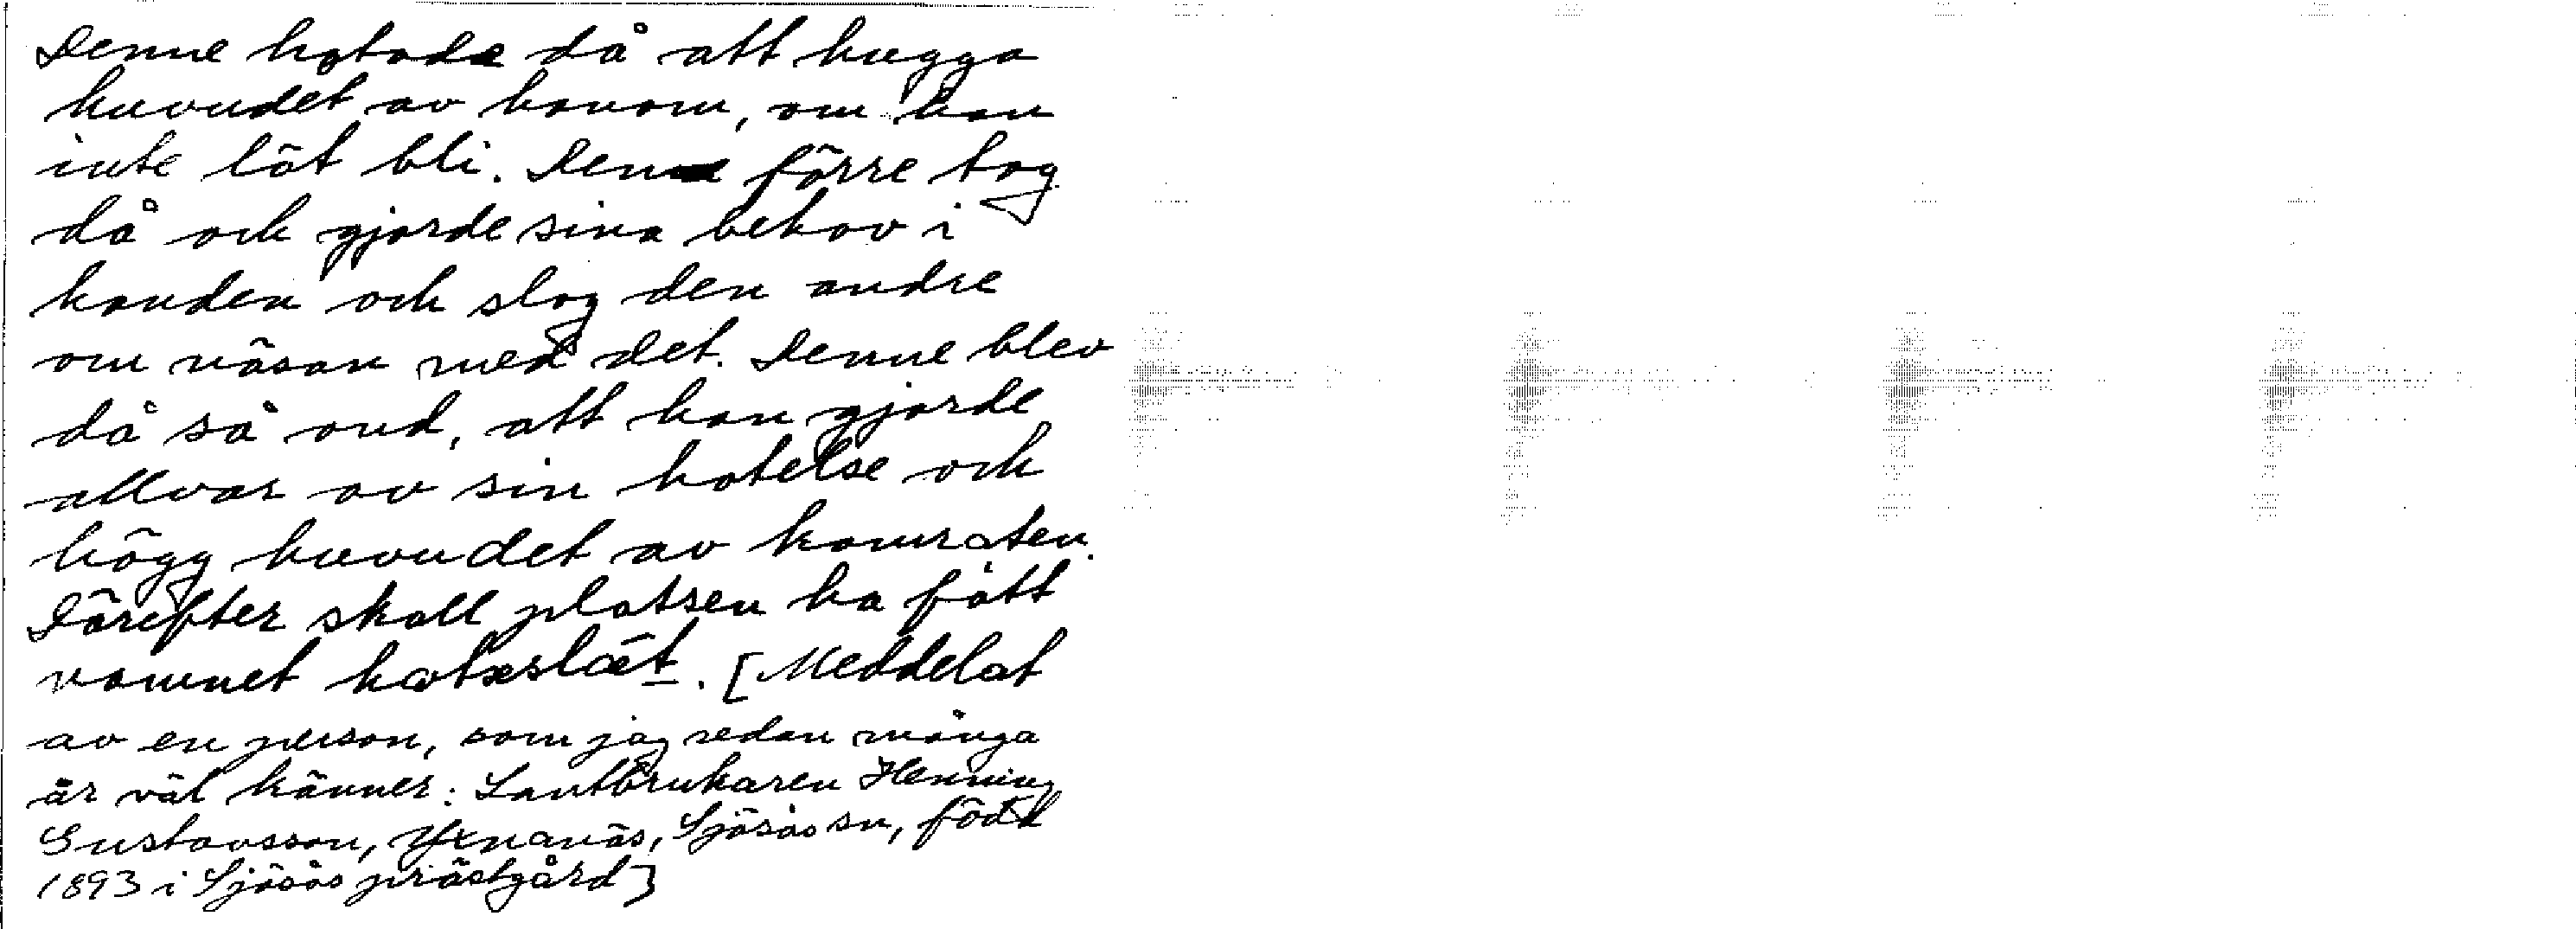 Denne hotade då att hugga
huvudet av honom, om han
inte lät bli. Denne förre tog
då och gjorde sina behov i
handen och slog den andre
om näsan med det. Denne blev
då så ond, att han gjorde
allvar av sin hotelse och
högg huvudet av kamraten.
Därefter skall platsen ha fått
namnet hatæslæt. [Meddelat
av en person, som jag redan många
år väl känner: Lantbrukaren Henning
Gustavsson, Yxnanäs, Sjösås sn, född
1893 i Sjösås prästgård]